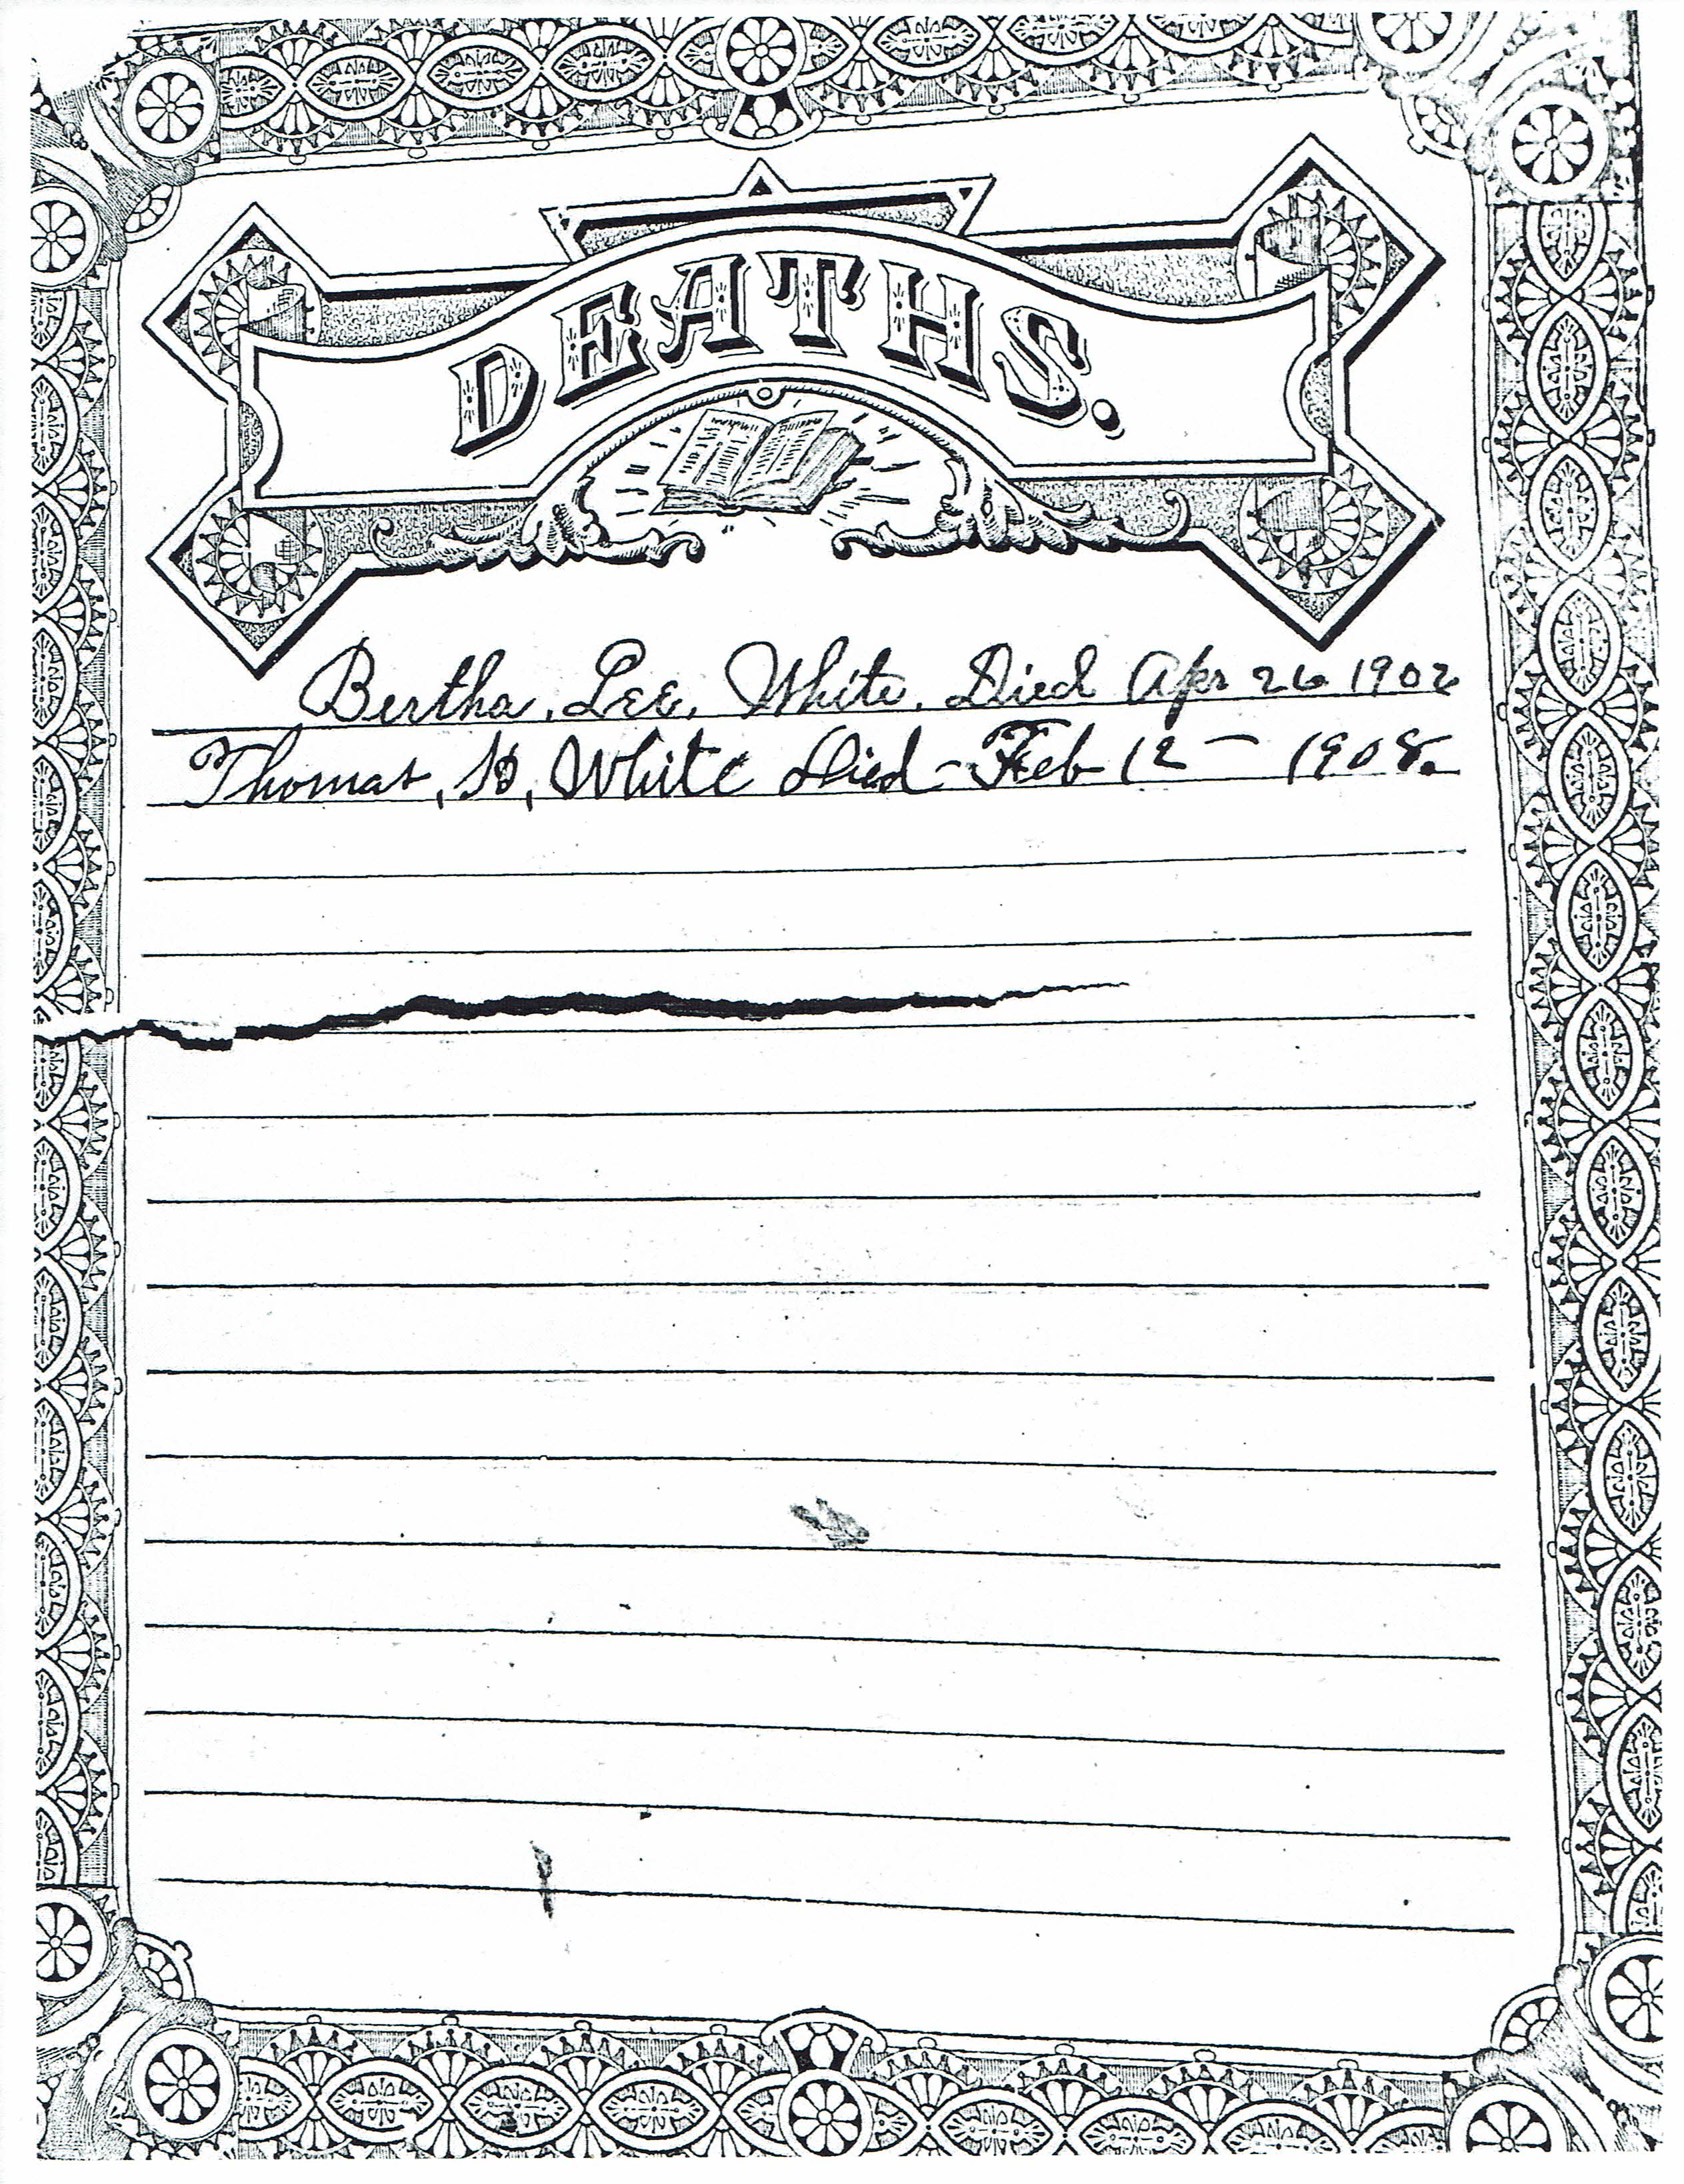 DEATHS.
Bertha, Lee, White, Died Apr 26 1902
Thomas, White Died - Feb 12 - 1908.